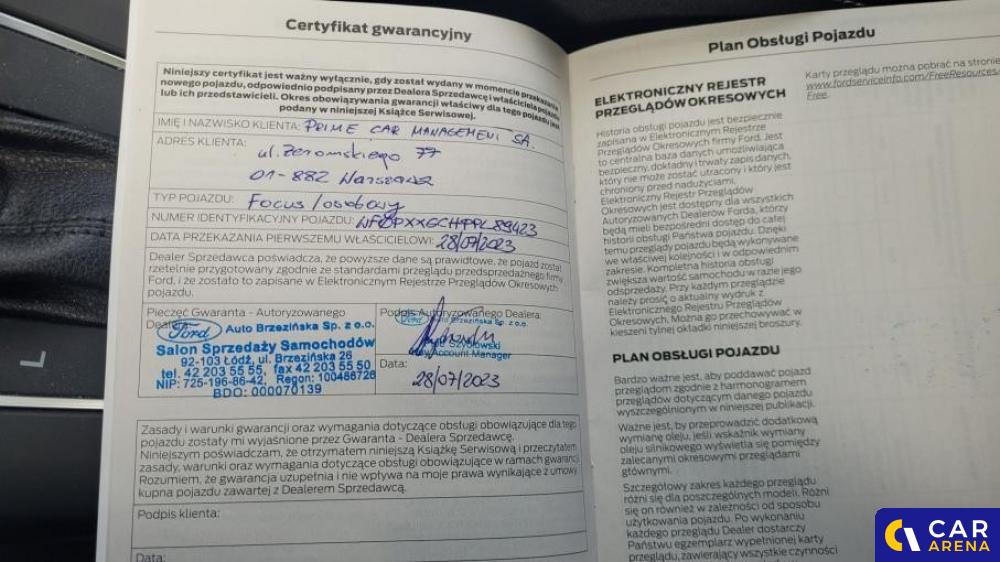 Certyfikat gwarancyjny
Niniejszy certyfikat jest ważny wyłącznie, gdy został wydany w momencie przekazania
nowego pojazdu, odpowiednio podpisany przez Dealera Sprzedawcę i właściciela pojazdu
lub ich przedstawicieli. Okres obowiązywania gwarancji właściwy dla tego pojazdu jest
podany w niniejszej Książce Serwisowej.
IMIĘ I NAZWISKO KLIENTA: PRIME CAR MANAGEMENT SA.
ADRES KLIENTA:
ul. Żeromskiego 77
01-882 Warszawa
TYP POJAZDU: Focus/osobowy
NUMER IDENTYFIKACYJNY POJAZDU:
DATA PRZEKAZANIA PIERWSZEMU WŁAŚCICIELOWI: 28/07/2023
Dealer Sprzedawca poświadcza, że powyższe dane są prawidłowe, że pojazd został
rzetelnie przygotowany zgodnie ze standardami przeglądu przedsprzedażnego firmy
Ford, i że zostało to zapisane w Elektronicznym Rejestrze Przeglądów Okresowych
pojazdu.
Pieczęć Gwaranta - Autoryzowanego
Dealera
Ford Auto Brzezińska Sp. z o.o.
Salon Sprzedaży Samochodów
92-103 Łódź, ul. Brzezińska 26
tel. 42 203 55 55, fax 42 203 55 50
NIP: 725-196-86-42, Regon: 100486726
BDO: 000070139
Podpis Autoryzowanego Dealera:
Ford Auto Brzezińska Sp. z o.o.
Account Manager
Data:
28/07/2023
Zasady i warunki gwarancji oraz wymagania dotyczące obsługi obowiązujące dla tego
pojazdu zostały mi wyjaśnione przez Gwaranta - Dealera Sprzedawcę.
Niniejszym poświadczam, że otrzymałem niniejszą Książkę Serwisową i przeczytałem
zasady, warunki oraz wymagania dotyczące obsługi obowiązujące w ramach gwarancji.
Rozumiem, że gwarancja uzupełnia i nie wpływa na moje prawa wynikające z umowy
kupna pojazdu zawartej z Dealerem Sprzedawcą.
Podpis klienta:
Data:
Plan Obsługi Pojazdu
ELEKTRONICZNY REJESTR
PRZEGLĄDÓW OKRESOWYCH
Historia obsługi pojazdu jest bezpiecznie
zapisana w Elektronicznym Rejestrze
Przeglądów Okresowych firmy Ford. Jest
to centralna baza danych umożliwiająca
bezpieczny, dokładny i trwały zapis danych,
który nie może zostać utracony i który jest
chroniony przed nadużyciami.
Elektroniczny Rejestr Przeglądów
Okresowych jest dostępny dla wszystkich
Autoryzowanych Dealerów Forda, którzy
będą mieli bezpośredni dostęp do całej
historii obsługi Państwa pojazdu. Dzięki
temu przeglądy pojazdu będą wykonywane
we właściwej kolejności i w odpowiednim
zakresie. Kompletna historia obsługi
zwiększa wartość samochodu w razie jego
odsprzedaży. Przy każdym przeglądzie
należy prosić o aktualny wydruk z
Elektronicznego Rejestru Przeglądów
Okresowych. Można go przechowywać w
kieszeni tylnej okładki niniejszej broszury.
PLAN OBSŁUGI POJAZDU
Bardzo ważne jest, aby poddawać pojazd
przeglądom zgodnie z harmonogramem
przeglądów dotyczącym danego pojazdu
wyszczególnionym w niniejszej publikacji.
Ważne jest, by przeprowadzić dodatkową
wymianę oleju, jeśli wskaźnik wymiany
oleju silnikowego wyświetla się pomiędzy
zalecanymi okresowymi przeglądami
głównymi.
Szczegółowy zakres każdego przeglądu
różni się dla poszczególnych modeli. Różni
się on również w zależności od sposobu
użytkowania pojazdu. Po wykonaniu
każdego przeglądu Dealer dostarczy
Państwu egzemplarz wypełnionej karty
przeglądu, zawierający wszystkie czynności
Karty przeglądu można pobrać na stronie
www.fordserviceinfo.com/FreeResources
Free.
CAR
ARENA